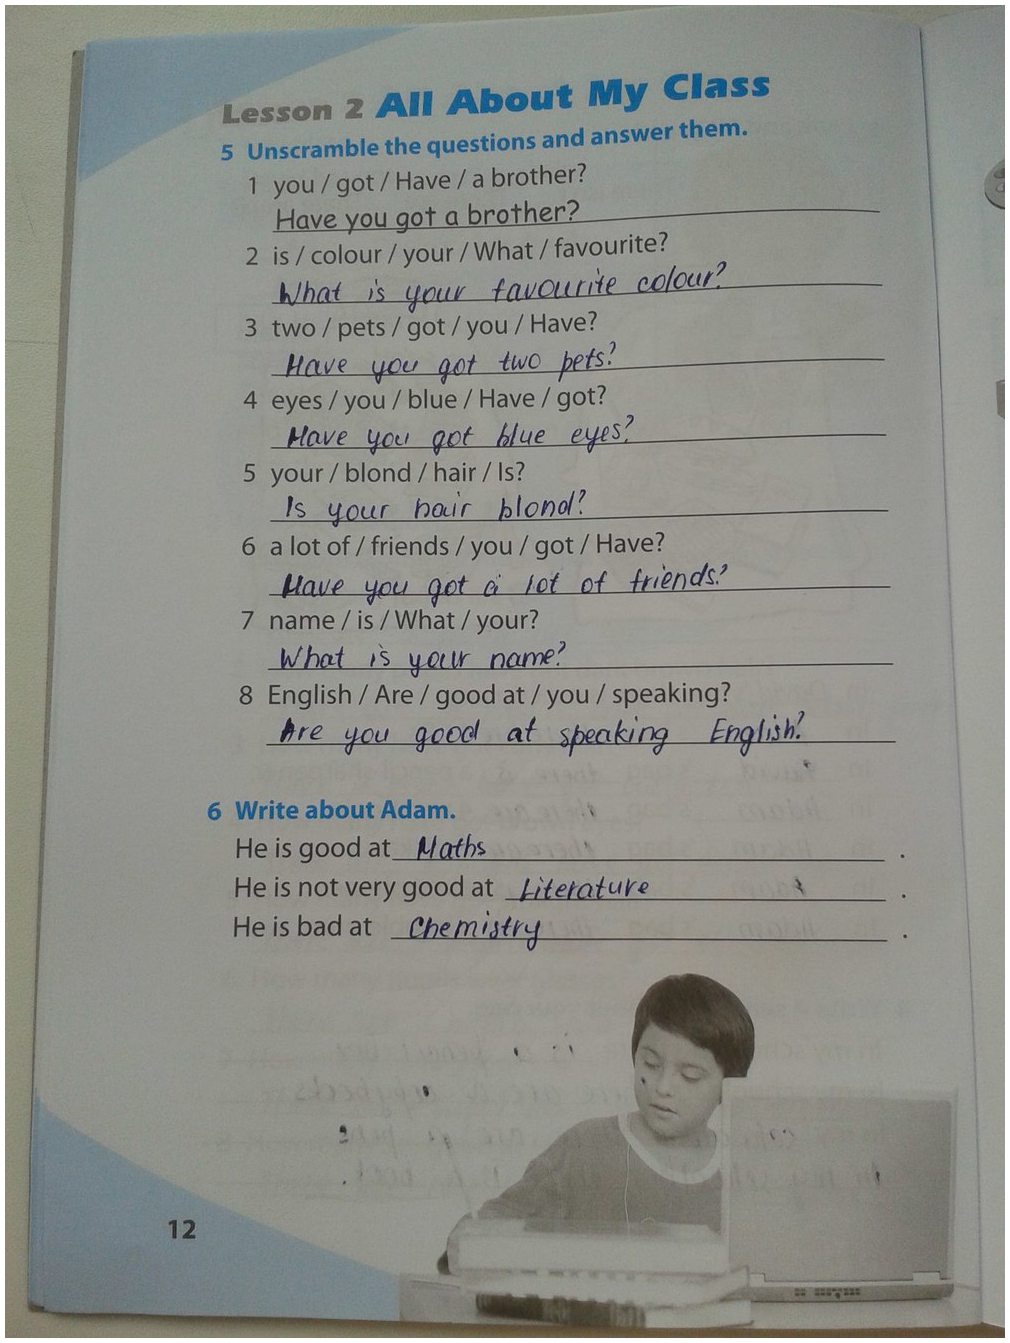 Lesson 2 All About My Class
5 Unscramble the questions and answer them.
1 you / got / Have / a brother?
Have you got a brother?
2 is / colour / your / What / favourite?
What is your favourite colour?
3 two / pets / got / you / Have?
Have you got two pets?
4 eyes / you / blue / Have / got?
Have you got blue eyes?
5 your / blond / hair / Is?
Is your hair blond?
6 a lot of / friends / you / got / Have?
Have you got a lot of friends?
7 name / is / What / your?
What is your name?
8 English / Are / good at / you / speaking?
Are you good at speaking English?
6 Write about Adam.
He is good at Maths .
He is not very good at Literature .
He is bad at Chemistry .
12